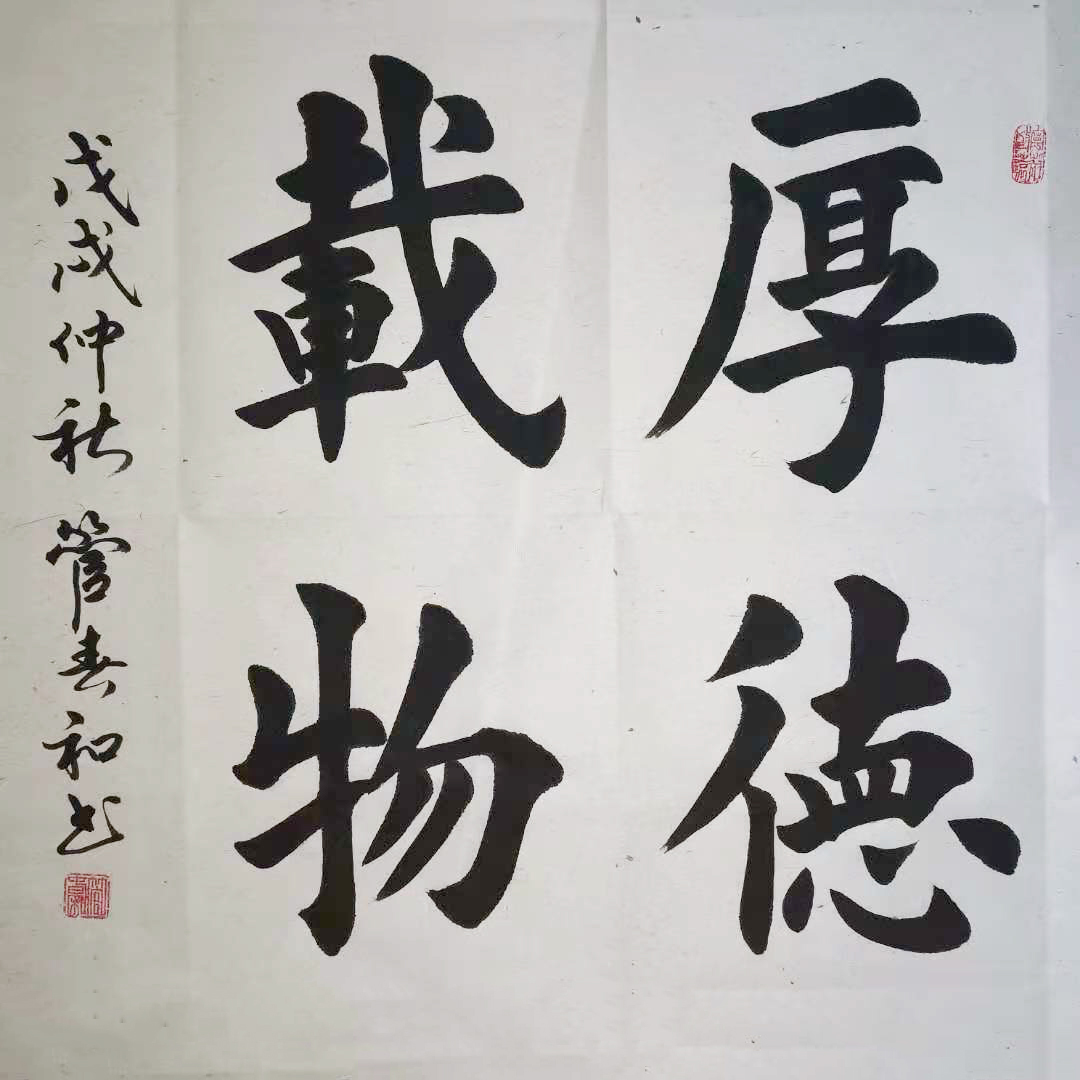 厚德
載物
戊戌仲秋 管春和书